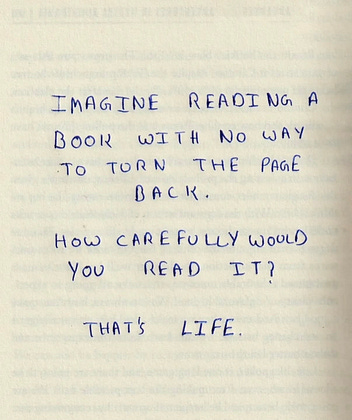 IMAGINE READING A
BOOK WITH NO WAY
TO TORN THE PAGE
BACK.
HOW CAREFULLY WOULD
YOU READ IT?
THAT'S LIFE.